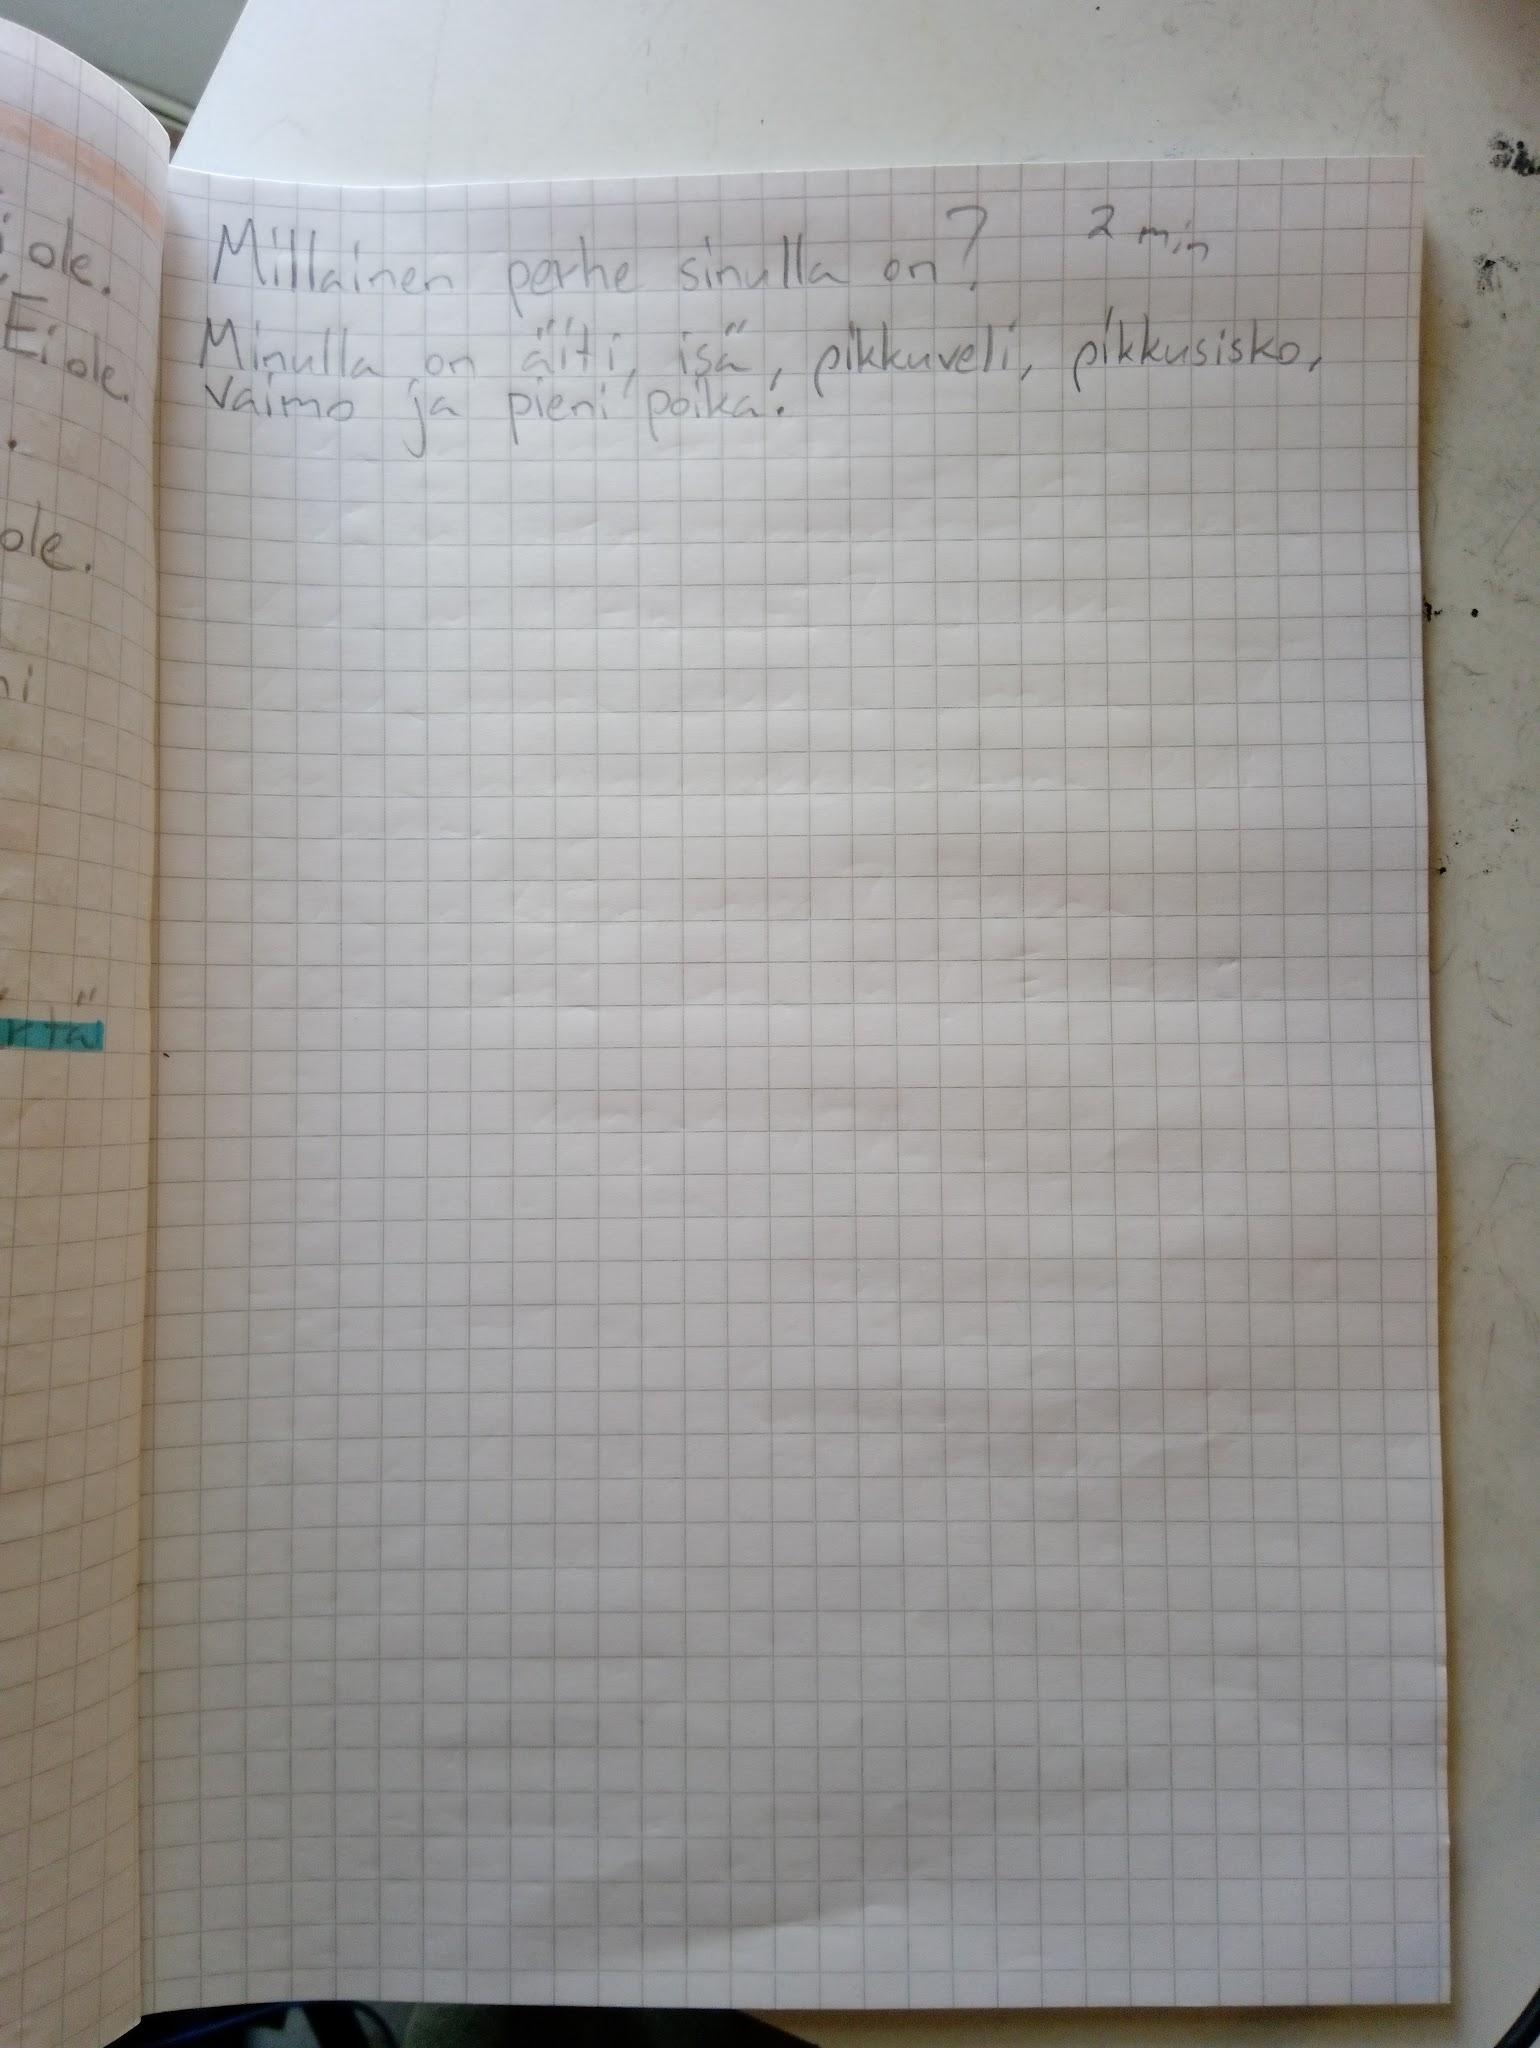 i ole.
Ei ole.
ole.
Millainen perhe sinulla on? 2 min
Minulla on äiti, isä, pikkuveli, pikkusisko,
vaimo ja pieni poika.